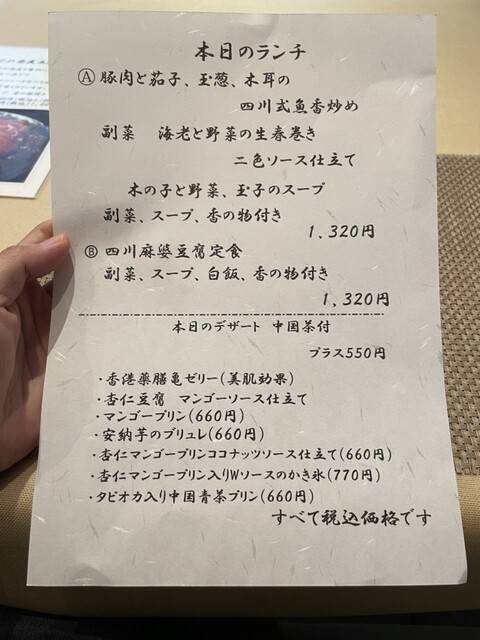 本日のランチ
Ⓐ 豚肉と茄子、玉葱、木耳の
四川式魚香炒め
副菜 海老と野菜の生春巻き
二色ソース仕立て
木の子と野菜、玉子のスープ
副菜、スープ、香の物付き
1,320円
Ⓑ 四川麻婆豆腐定食
副菜、スープ、白飯、香の物付き
1,320円
本日のデザート 中国茶付
プラス550円
・香港薬膳亀ゼリー(美肌効果)
・杏仁豆腐 マンゴーソース仕立て
・マンゴープリン(660円)
・安納芋のブリュレ(660円)
・杏仁マンゴープリンココナッツソース仕立て(660円)
・杏仁マンゴープリン入りWソースのかき氷(770円)
・タピオカ入り中国青茶プリン(660円)
すべて税込価格です